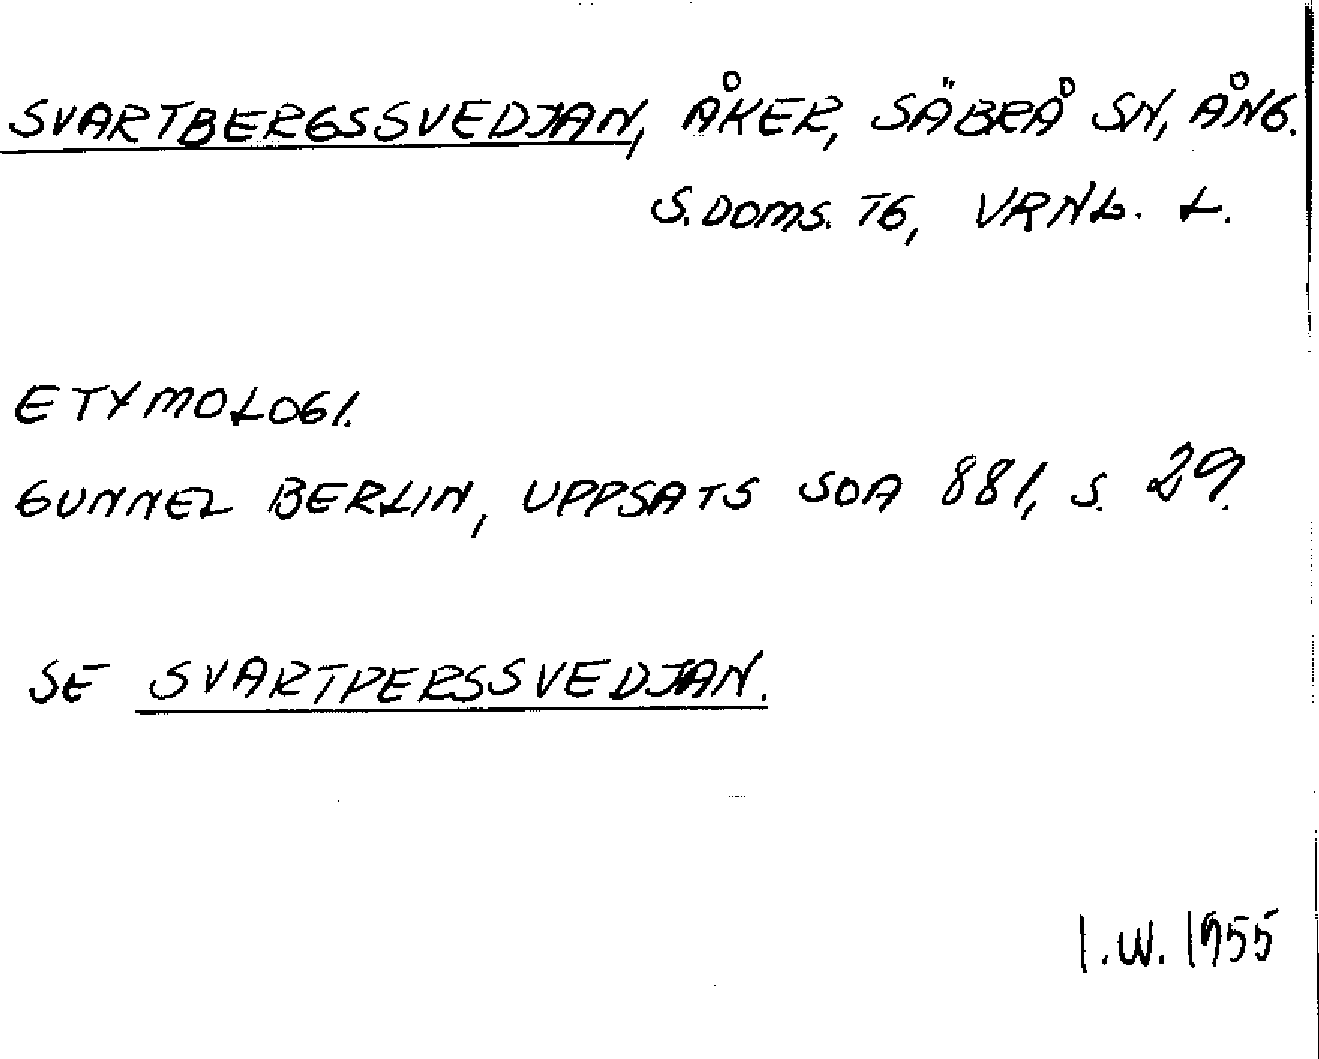 SVARTBERGSSVEDJAN, ÅKER, SÄBRÅ SN, ÅNG.
S. DOMS. TG, VRNL. L.
ETYMOLOGI.
GUNNEL BERLIN, UPPSATS SOA 881, S. 29.
SE SVARTPERSSVEDJAN.
I.W. 1955